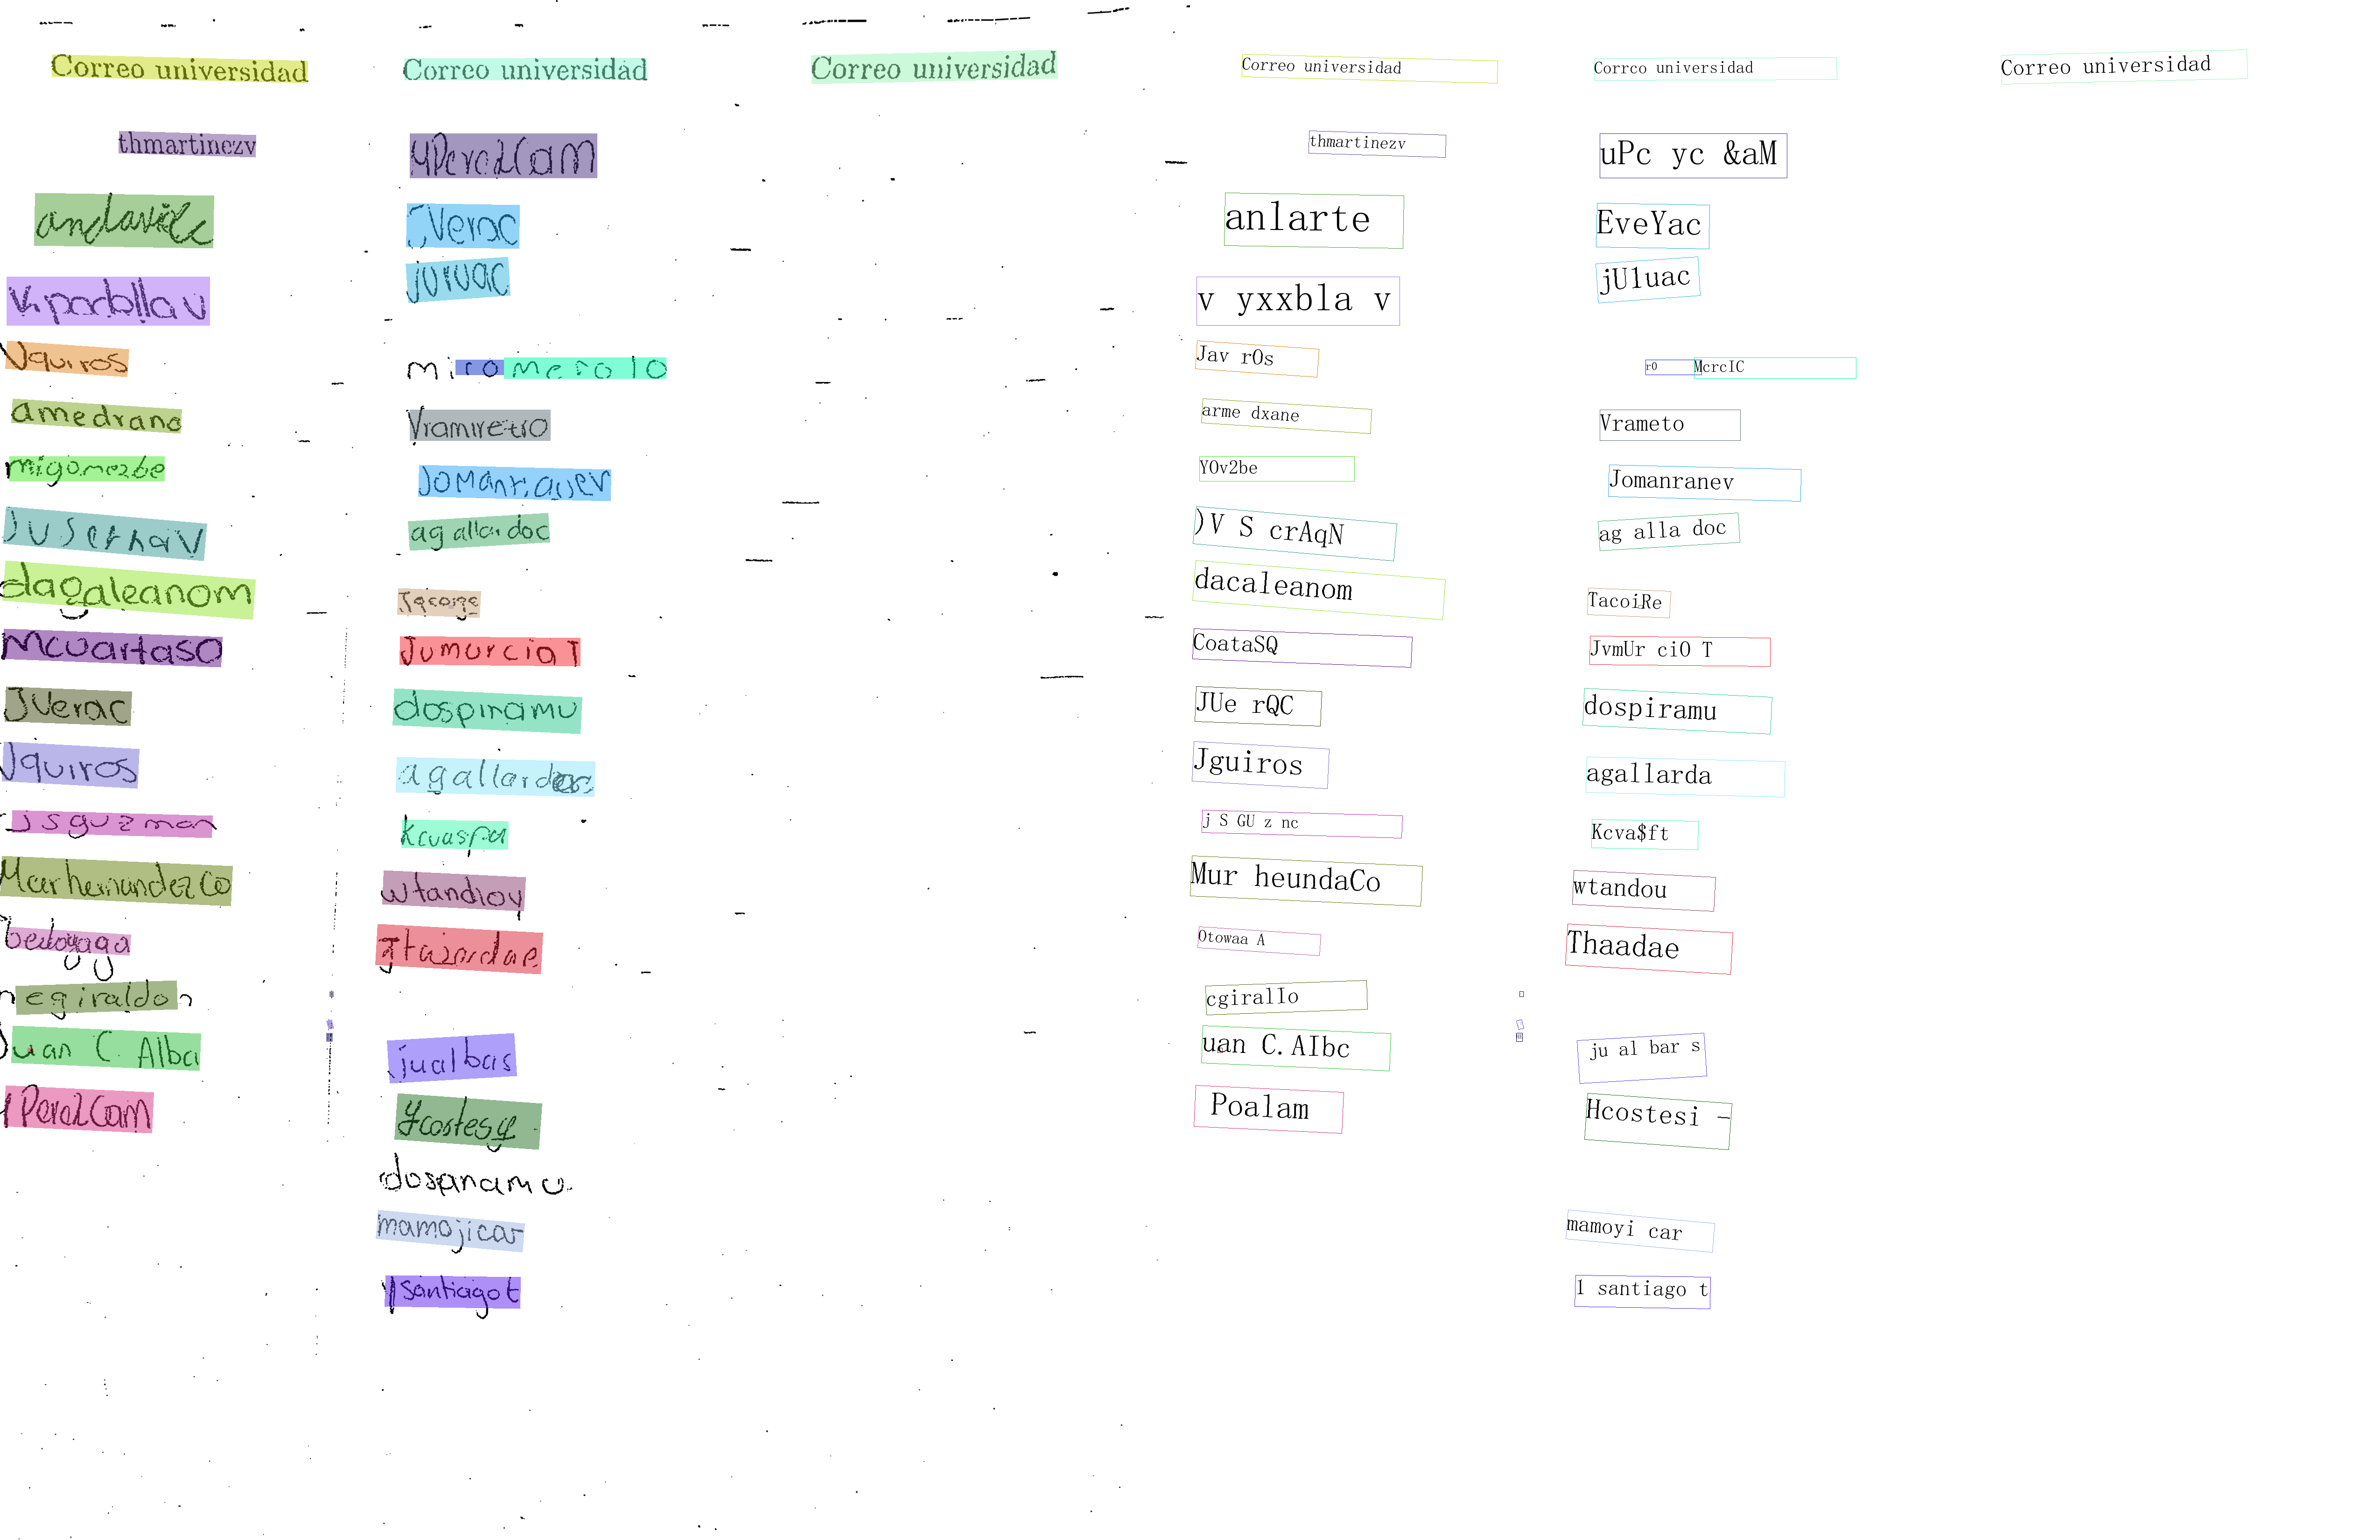 Correo universidad
thmartinezv
andavilc
Jquiros
amedrano
migomezbe
jusernav
dagaleanom
Mcuartaso
JVerac
Jquiros
jsguzman
Marhernandezco
bedoyaga
negiraldon
Juan C. Alba
yPerezCam
Correo universidad
yPerezCam
jVerac
juruac
miromero10
Vramireto
Jomanriquev
agallardoc
Jumurcia T
dospiramu
agallardoc
kcuaspa
wtandioy
jualbas
ycostesy
dospiramu
mamojicar
ysantiagot
Correo universidad
Correo universidad
thmartinezv
anlarte
v yxxbla v
Jav rOs
arme dxane
YOv2be
)V S crAqN
dacaleanom
CoataSQ
JUe rQC
Jguiros
j S GU z nc
Mur heundaCo
Otowaa A
cgiralIo
uan C.AIbc
Poalam
Corrco universidad
uPc yc &aM
EveYac
jU1uac
r0 McrcIC
Vrameto
Jomanranev
ag alla doc
TacoiRe
JvmUr ciO T
dospiramu
agallarda
Kcva$ft
wtandou
Thaadae
ju al bar s
Hcostesi -
mamoyi car
1 santiago t
Correo universidad